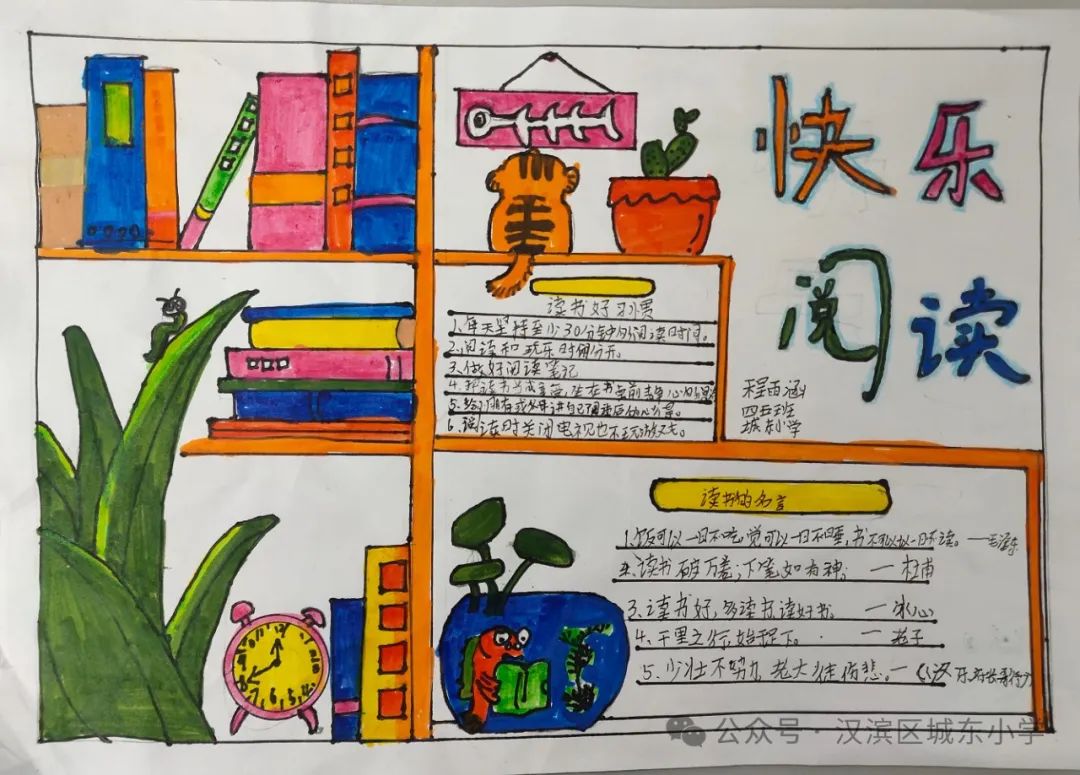 快乐
阅读
读书好习惯
1、每天坚持至少30分钟的阅读时间。
2、阅读和玩乐时间分开。
3、做好阅读笔记
4、把读书当成享,坐在书桌前专心阅
5、给朋友或父母讲自己阅读后的心
6、阅读时关闭电视也不玩游戏。
程雨涵
四五班
城东小学
读书的名言
1、饭可以一日不吃,觉可以一日不睡,书不可以一日不读。——毛泽东
2、读书破万卷;下笔如有神; 一 杜甫
3、读书好,多读书,读好书。 一 冰心
4、千里之行,始于足下。 一 老子
5、少壮不努力,老大徒伤悲。一《汉乐府长歌行》
公众号·汉滨区城东小学